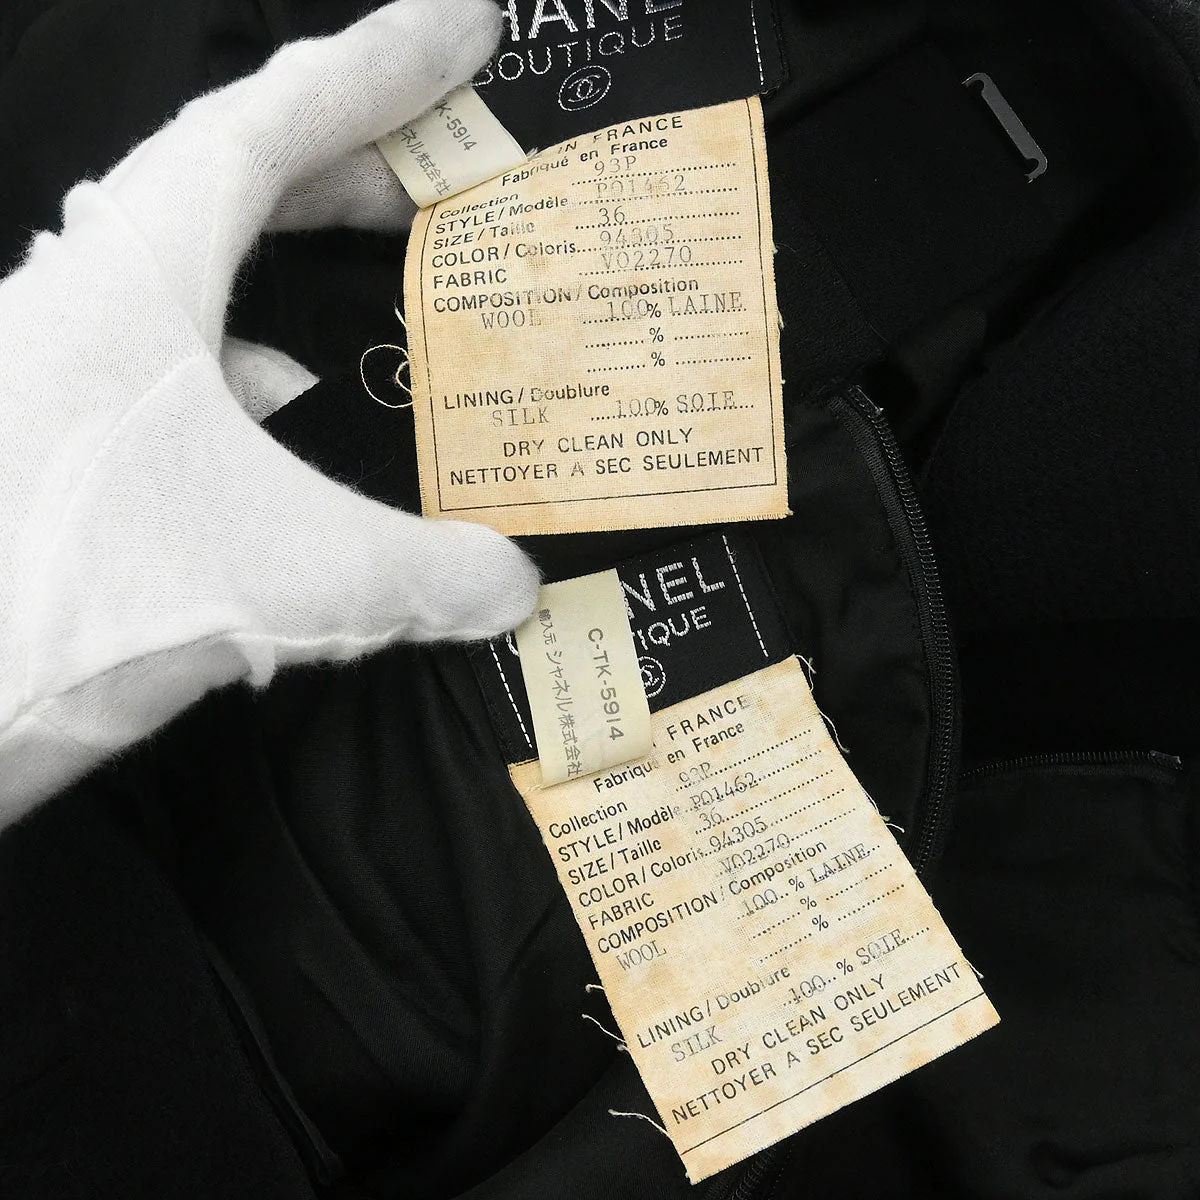 HANEL
BOUTIQUE
K-5914
ネル株式会社
IN FRANCE
Fabriqué en France
Collection 93P
STYLE/Modèle P01462
SIZE/Taille 36
COLOR/Coloris 94305
FABRIC V02270
COMPOSITION/Composition
WOOL 100% LAINE
%
%
LINING/Doublure
SILK 100% SOIE
DRY CLEAN ONLY
NETTOYER A SEC SEULEMENT
NEL
TIQUE
C-TK-5914
輸入元 シャネル株式会社
FRANCE
Fabriqué en France
Collection 93P
STYLE/Modèle P01462
SIZE/Taille 36
COLOR/Coloris 94305
FABRIC V02270
COMPOSITION/Composition
WOOL 100% LAINE
%
%
LINING/Doublure
SILK 100% SOIE
DRY CLEAN ONLY
NETTOYER A SEC SEULEMENT